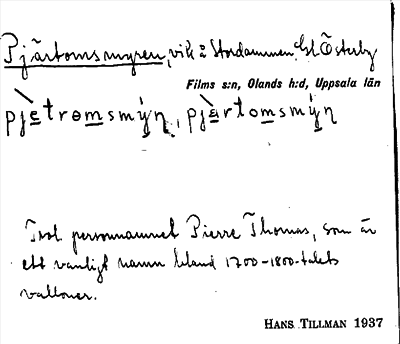 Pjärtomsmyren, vik i Stordammen. Gl Österby
Films s:n, Olands h:d, Uppsala län
pjètromsmýn, pjàrtomsmýn
Trol personnamnet Pierre Thomas, som är
ett vanligt namn bland 1700-1800-talets
valloner.
HANS TILLMAN 1937